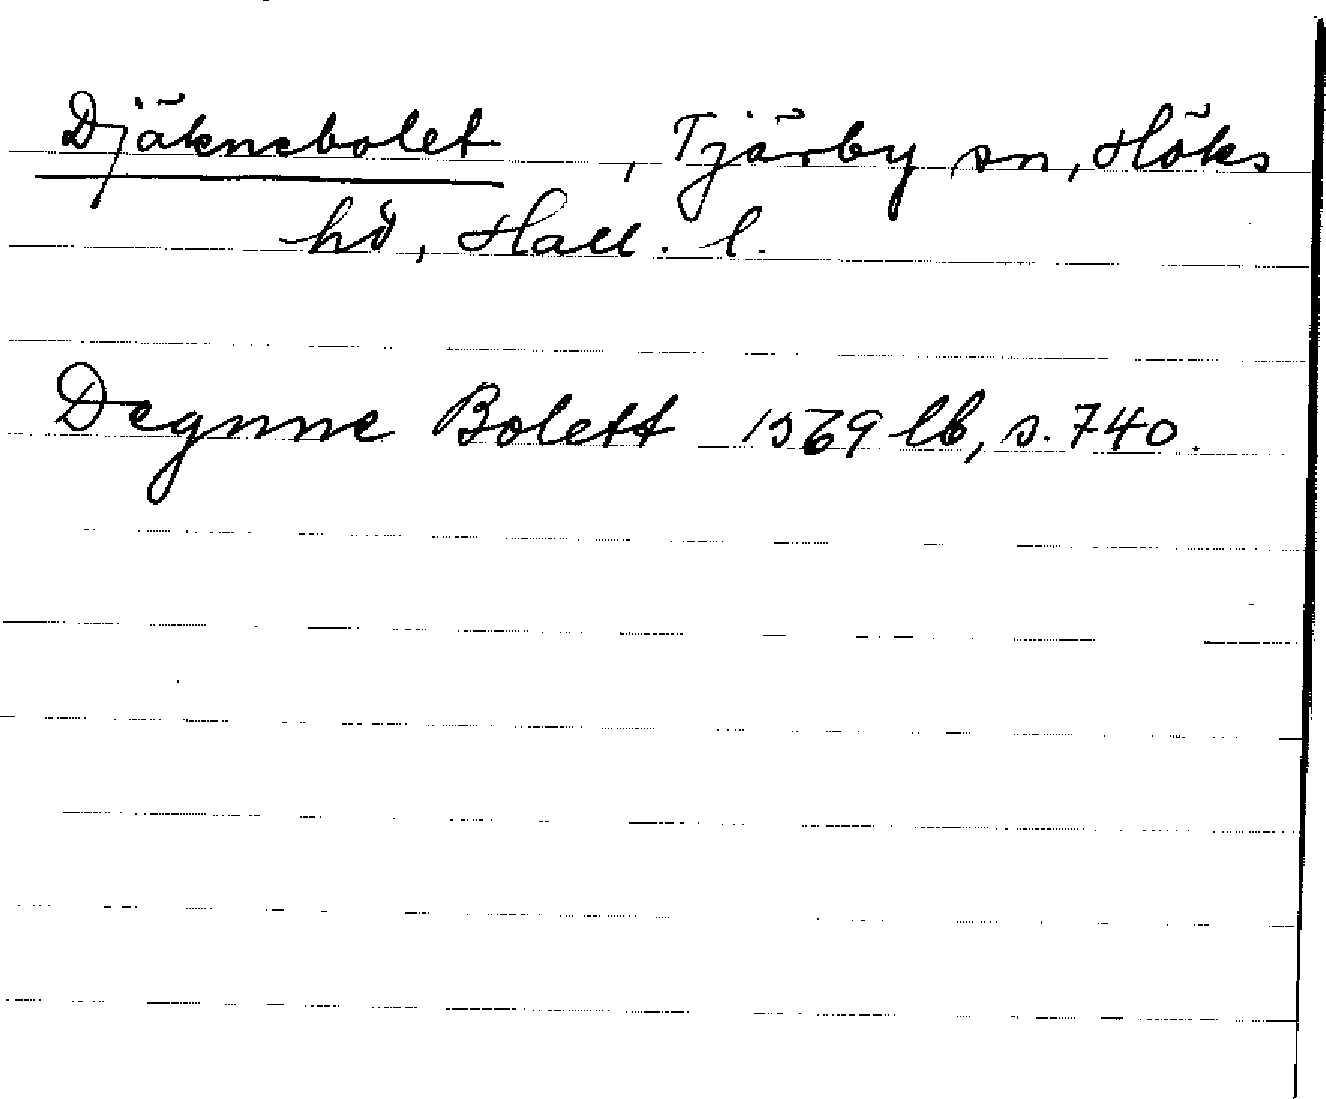 Djäknebolet, Tjärby sn, Höks
hd, Hall. l.
Degnne Bolett 1569 lb, s. 740.